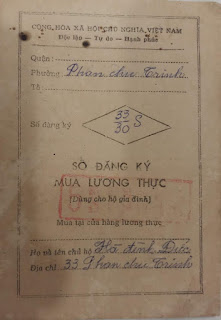 CỘNG HÒA XÃ HỘI CHỦ NGHĨA VIỆT NAM
Độc lập — Tự do — Hạnh phúc
Quận:
Phường Phan chu Trinh
Tổ
Số đăng ký 33/30 S
SỔ ĐĂNG KÝ
MUA LƯƠNG THỰC
(Dùng cho hộ gia đình)
Mua tại cửa hàng lương thực
Họ và tên chủ hộ Hà đình Đức
Địa chỉ 33 Phan chu Trinh